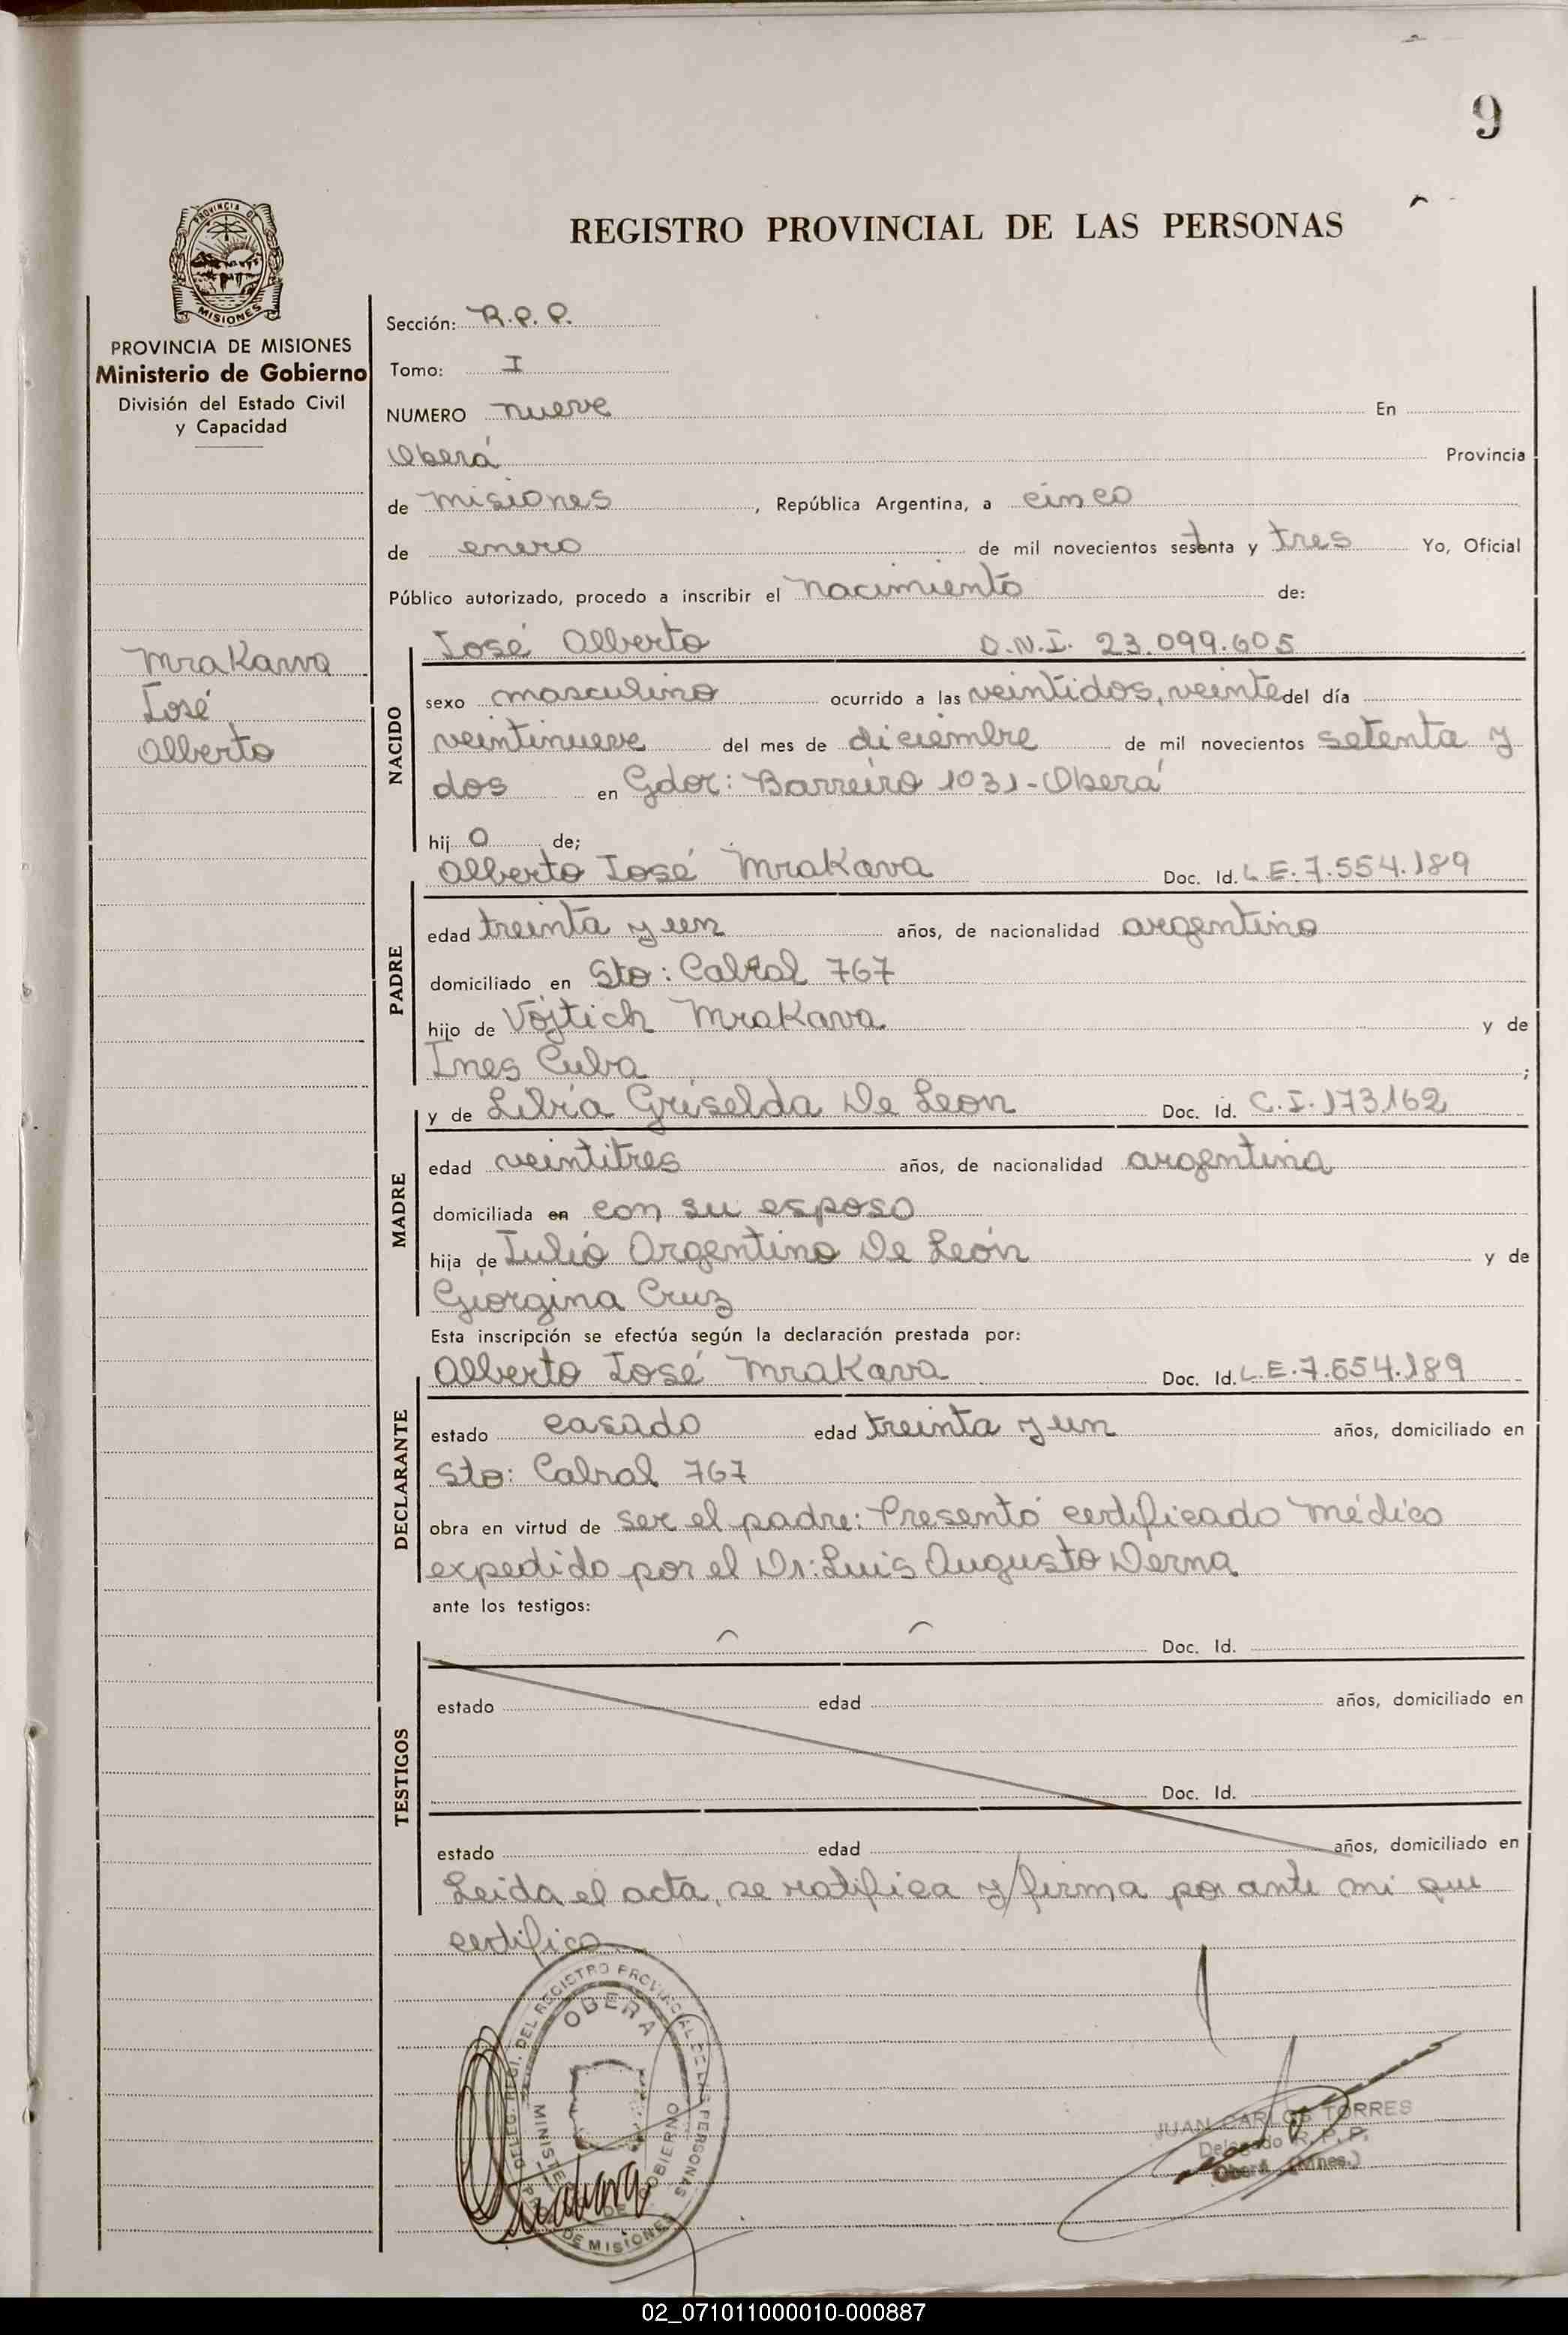 9
PROVINCIA DE
MISIONES
REGISTRO PROVINCIAL DE LAS PERSONAS
PROVINCIA DE MISIONES
Ministerio de Gobierno
División del Estado Civil
y Capacidad
Mrakawa
José
Alberto
Sección: R.P.P.
Tomo: I
NUMERO nueve En
Oberá Provincia
de misiones, República Argentina, a cinco
de enero de mil novecientos setenta y tres Yo, Oficial
Público autorizado, procedo a inscribir el nacimiento de:
NACIDO
José Alberto D.N.I. 23.099.605
sexo masculino ocurrido a las veintidos, veinte del día
veintinueve del mes de diciembre de mil novecientos setenta y
dos en Gdor: Barreiro 1031-Oberá
hij o de;
PADRE
Alberto José Mrakava Doc. Id. L.E. 7.554.189
edad treinta y un años, de nacionalidad argentino
domiciliado en Sto: Cabral 767
hijo de Vojtich Mrakava y de
Ines Cuba ;
MADRE
y de Libia Griselda De Leon Doc. Id. C.I. 173162
edad veintitres años, de nacionalidad argentina
domiciliada en con su esposo
hija de Julio Argentino De León y de
Giorgina Cruz
Esta inscripción se efectúa según la declaración prestada por:
DECLARANTE
Alberto José Mrakava Doc. Id. L.E. 7.554.189
estado casado edad treinta y un años, domiciliado en
Sto: Cabral 767
obra en virtud de ser el padre: Presentó certificado médico
expedido por el Dr: Luis Augusto Derna
ante los testigos:
TESTIGOS
Doc. Id.
estado edad años, domiciliado en
Doc. Id.
estado edad años, domiciliado en
Leida el acta, se ratifica y firma por ante mi que
certifico
DELEG. REGI. DEL REGISTRO PROVINCIAL DE LAS PERSONAS
OBERA
MINISTERIO DE GOBIERNO
DE MISIONES
JUAN CARLOS TORRES
Delegado R.P.P.
Oberá (Mnes.)
02_071011000010-000887